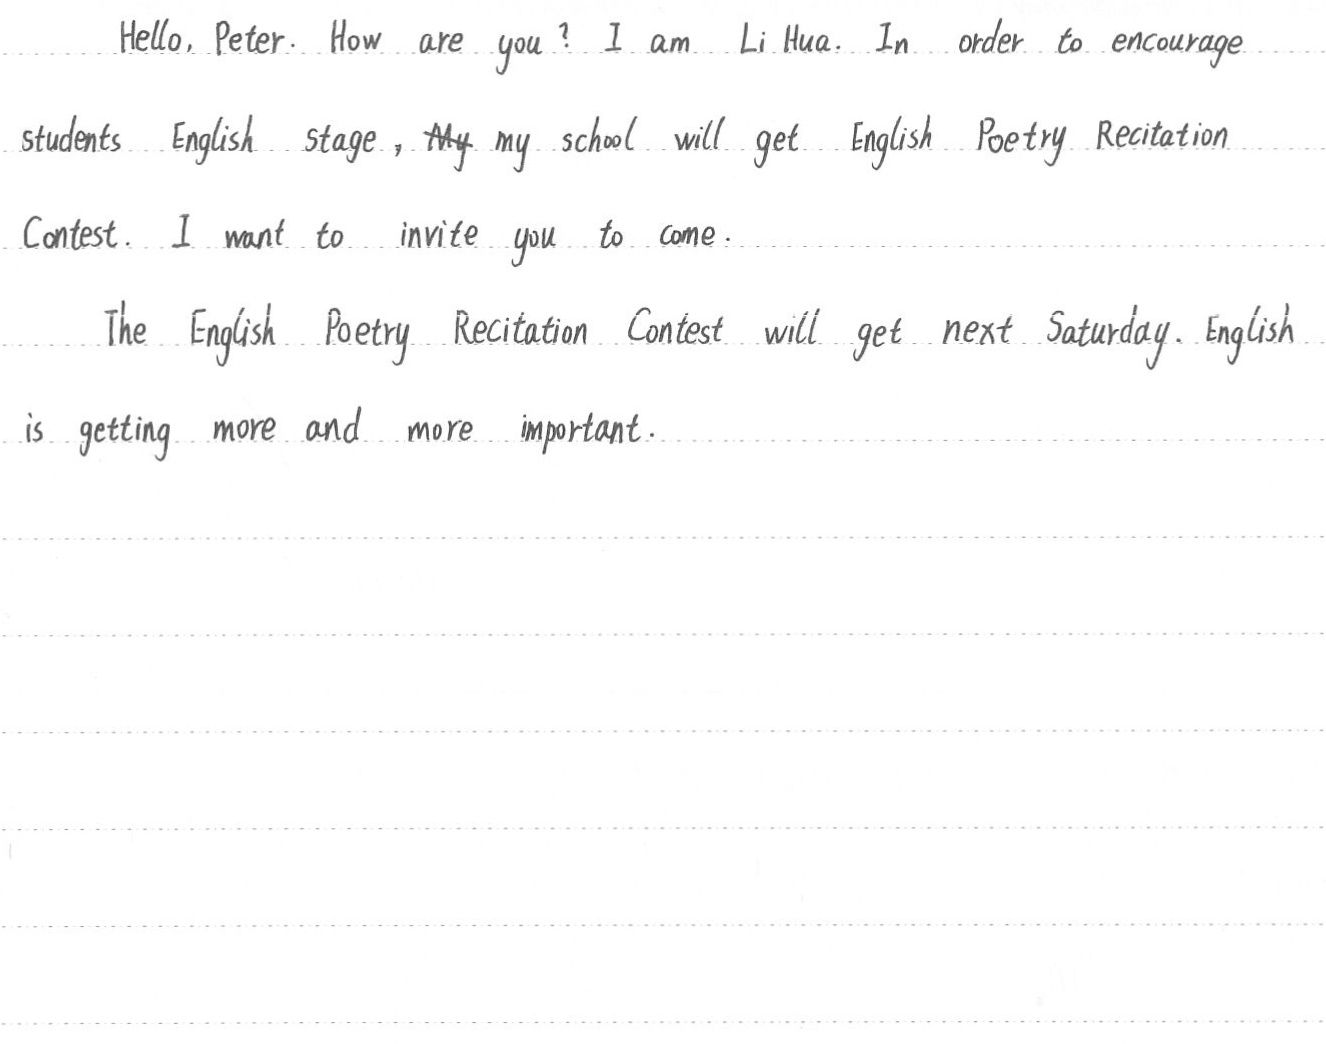 Hello, Peter. How are you? I am Li Hua. In order to encourage
students English stage, my school will get English Poetry Recitation
Contest. I want to invite you to come.
The English Poetry Recitation Contest will get next Saturday. English
is getting more and more important.